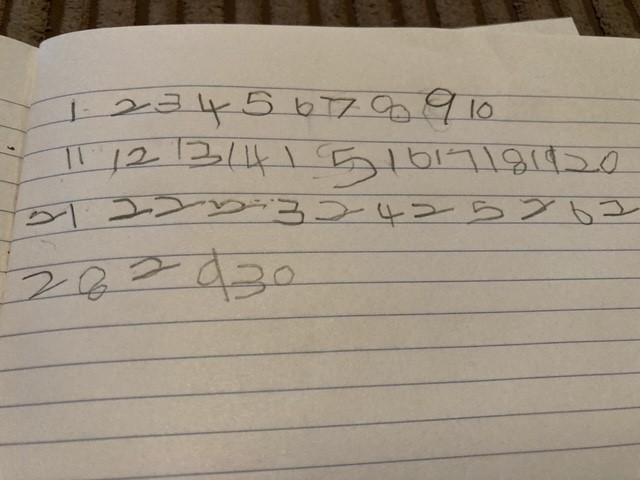 1 2 3 4 5 6 7 8 9 10
11 12 13 14 15 16 17 18 19 20
21 22 23 24 25 26 2
28 29 30